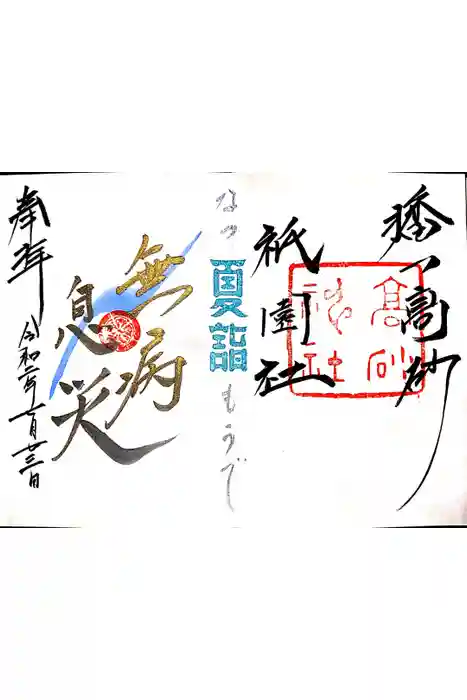 播一高砂
祇園社
高砂
神社
なつ
夏詣
もうで
無病
息災
奉拝
令和二年七月廿三日